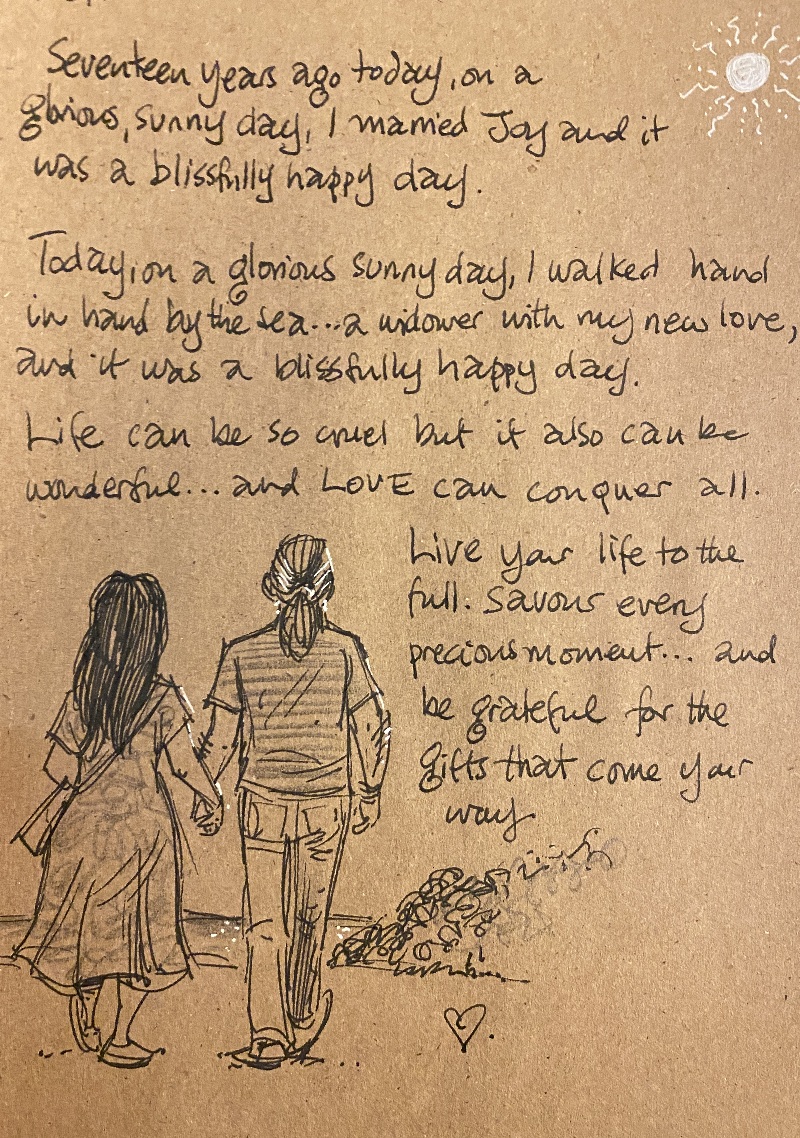 Seventeen years ago today, on a
glorious, sunny day, I married Joy and it
was a blissfully happy day.
Today, on a glorious sunny day, I walked hand
in hand by the sea...a widower with my new love,
and it was a blissfully happy day.
Life can be so cruel but it also can be
wonderful... and LOVE can conquer all.
Live your life to the
full. Savour every
precious moment... and
be grateful for the
gifts that come your
way